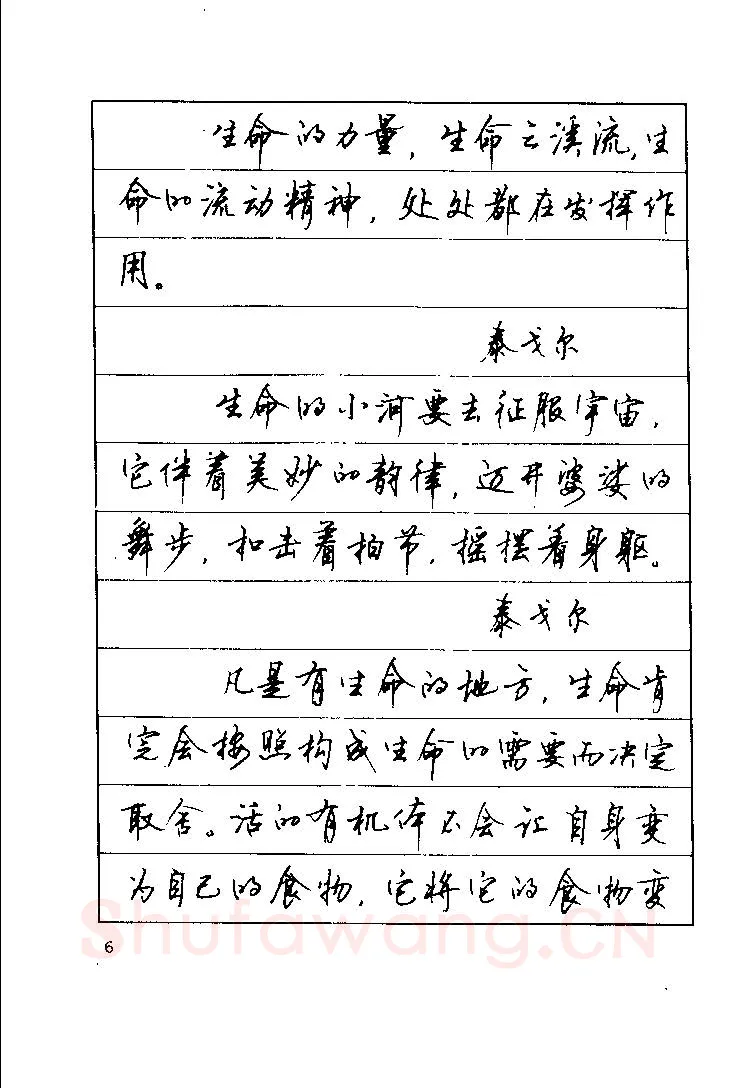 生命的力量，生命之溪流，生
命的流动精神，处处都在发挥作
用。
泰戈尔
生命的小河要去征服宇宙，
它伴着美妙的韵律，迈开婆娑的
舞步，扣击着拍节，摇摆着身躯。
泰戈尔
凡是有生命的地方，生命肯
定会按照构成生命的需要而决定
取舍。活的有机体不会让自身变
为自己的食物，它将它的食物变
Shufawang.CN
6